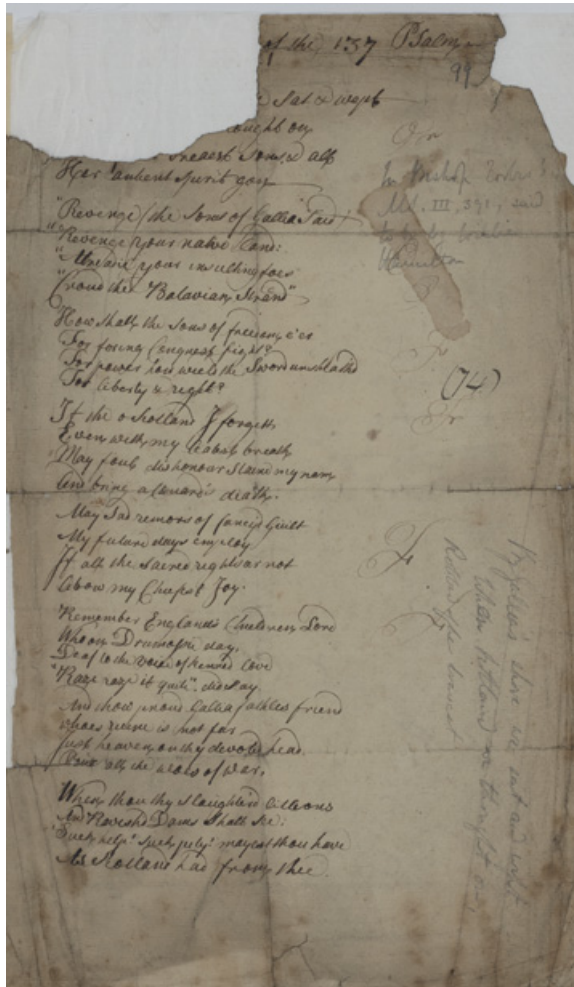 of the, 137 Psalm
99
Sat & wept
ought on,
dearest sons, & all
Her antient spirit gon
"Revenge (the sons of Gallia said)
"Revenge your native Land:
"Already your insulting foes
"Croud the Batavian, Strand"
How shall, the sons of freedom, e'er
For foring Congness fight?
For power how wield the Sword unsheath'd
For liberty & right?
If the o Scotland I forgett,
Even, with, my breath,
May foul dishonour Staind my nam,
And bring a Couard's death.
May Sad remors of fancid Guilt
My future days employ
If all, the sacred rights ar not
Above my Cheefest Joy.
Remember England's Children, Lord
Who on, Drumossie day,
Deaf to the voice of kinned Love
"Raze raze it quite", did say.
And thow proud Gallia faithles friend
whoes ruine is not far
Just heaven, on thy devoted head,
Pour all, the woes of war,
When, thou thy slaughter'd little ons
And Ravesh'd Dams Shall See:
"Such, help! Such, pity! mayest thou have
As Scotland had from, thee.
In Bishop
III, 371, said
to be by
Hamilton
(74)
Gallia's shore we sat and wept
When Scotland we thought on,